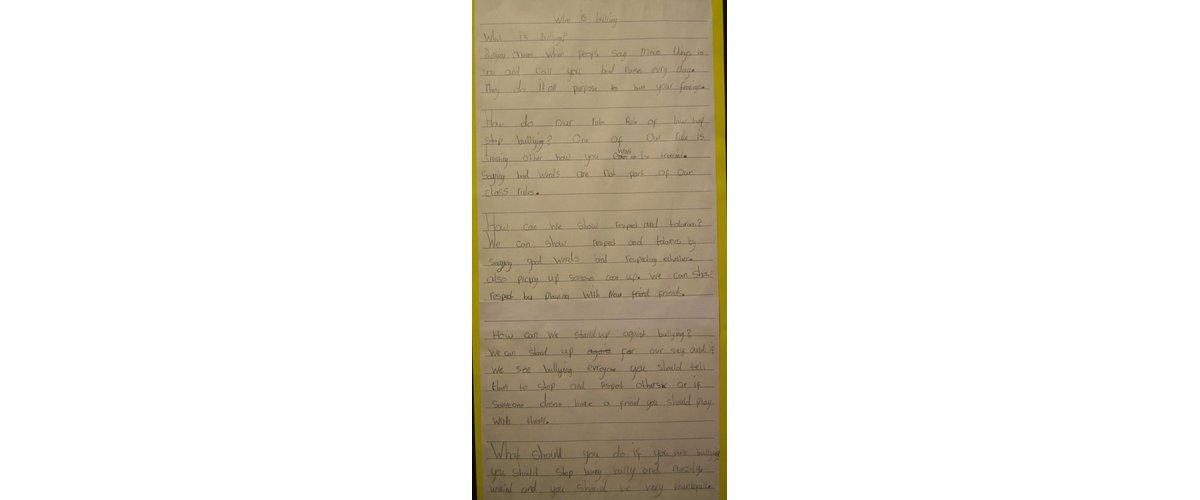 What is bullying
What is bullying?
Bullying means when people say mean things to
you and call you bad names every day.
They do it on purpose to hurt your feelings.
How do our rules Rule of
stop bullying? One of Our rule is
treating other how you want to be
Saying bad words are not part of our
class rules.
How can we show respect and
We can show respect and by
saying good words and respecting
also picking up someone up. We can show
respect by playing with new friend friends.
How can we stand up against bullying?
We can stand up against for our self and if
we see bullying you should tell
them to stop and respect others or if
Someone have a friend you should play
with them.
What should you do if you are bullying
you should stop being bully and
unkind and you should be very